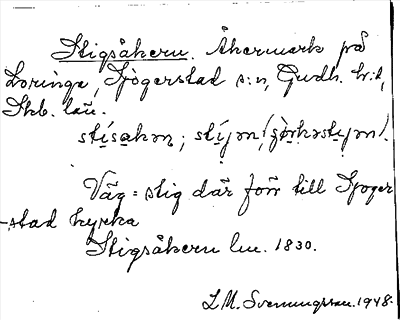 Stigsåkern. Åkermark på
Loringe, Sjögerstad s:n, Gudh. h:d,
Skb. län.
stísakn; stíjm (
Väg = stig där förr till Sjoger
-stad kyrka
Stigsåkern lm. 1830.
L.M. Svenungsson. 1948.